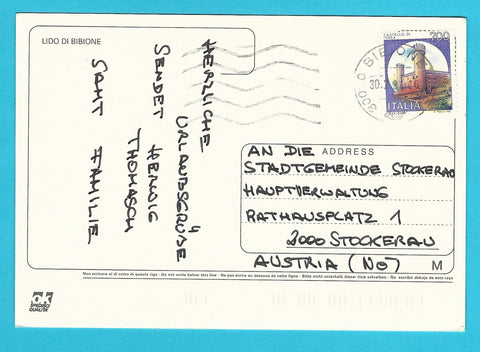 LIDO DI BIBIONE
HERZLICHE
URLAUBSGRÜSE
SENDET HERWIG
THOMASCH
SAMT FAMILIE
700
ITALIA
30.
BIBIO
ADDRESS
AN DIE
STADTGEMEINDE STOCKERAU
HAUPTVERWALTUNG
RATHAUSPLATZ 1
2000 STOCKERAU
AUSTRIA (NÖ)
M
Non scrivere al di sotto di questa riga - Do not write below this line - Ne pas écrire au dessous de cette ligne - Bitte nicht unterhalb dieser linie schreiben - No escribir debajo de esta raya
ok